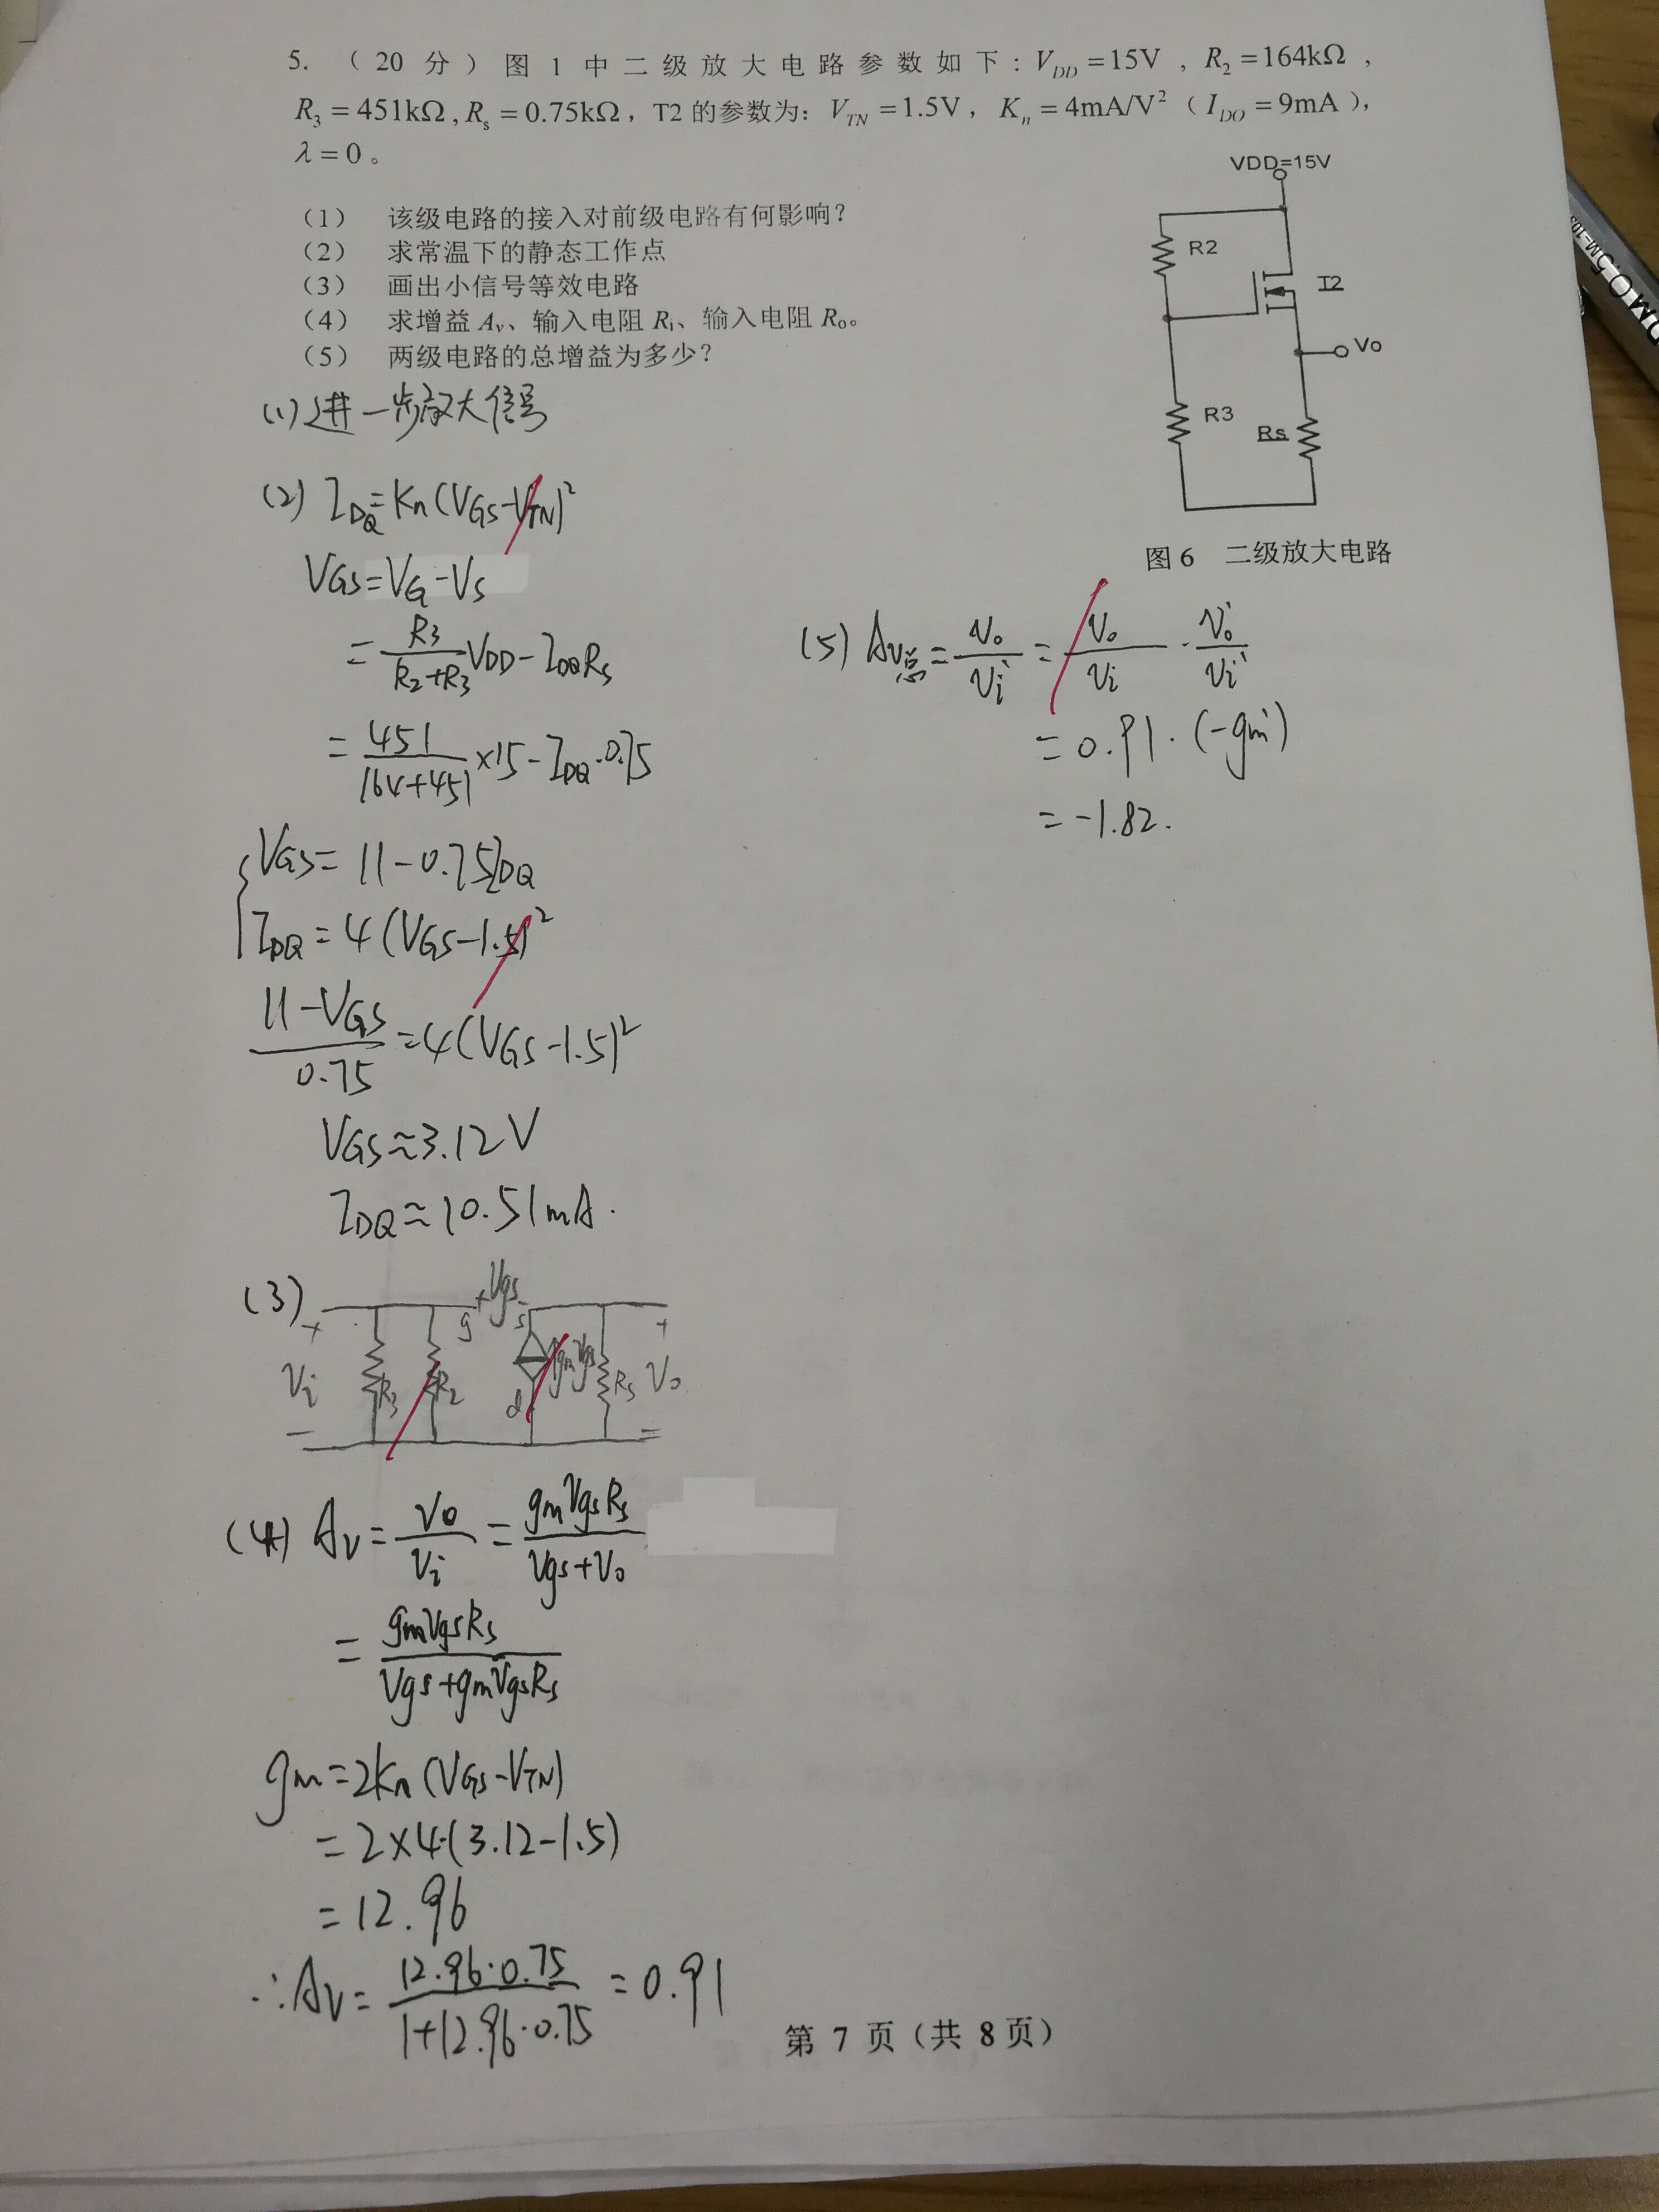 5. （20分）图1中二级放大电路参数如下：V_DD=15V，R₂=164kΩ，
R₃=451kΩ，Rs=0.75kΩ，T2的参数为：V_TN=1.5V，Kn=4mA/V²（I_DO=9mA），
λ=0。
（1） 该级电路的接入对前级电路有何影响？
（2） 求常温下的静态工作点
（3） 画出小信号等效电路
（4） 求增益 Av、输入电阻 Ri、输入电阻 Ro。
（5） 两级电路的总增益为多少？
VDD=15V
R2
T2
Vo
R3
Rs
图6 二级放大电路
(1) 进一步放大信号
(2) I_DQ=Kn(V_GS-V_TN)²
V_GS=V_G-V_S
=R3/(R2+R3) VDD-I_DQ Rs
=451/(164+451)×15-I_DQ·0.75
V_GS=11-0.75I_DQ
I_DQ=4(V_GS-1.5)²
(11-V_GS)/0.75=4(V_GS-1.5)²
V_GS≈3.12V
I_DQ≈10.51mA.
(3)
+ Vgs -
g s
+ +
Vi R3 R2 d gmVgs Rs Vo
- -
(4) Av=Vo/Vi=gmVgsRs/(Vgs+Vo)
=gmVgsRs/(Vgs+gmVgsRs)
gm=2Kn(V_GS-V_TN)
=2×4·(3.12-1.5)
=12.96
∴Av=12.96·0.75/(1+12.96·0.75)=0.91
(5) Av总=Vo/Vi'=Vo/Vi·Vo'/Vi'
=0.91·(-gm')
=-1.82.
第 7 页（共 8页）